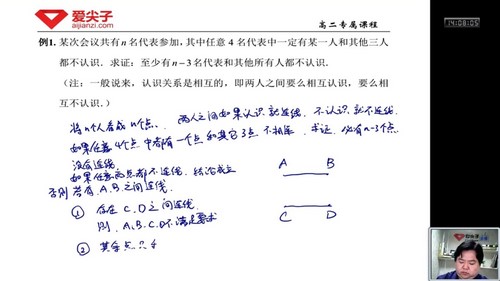 爱尖子
aijianzi.com
高二专属课程
14:08:05
例1. 某次会议共有n名代表参加,其中任意 4 名代表中一定有某一人和其他三人
都不认识. 求证:至少有n−3名代表和其他所有人都不认识.
(注:一般说来,认识关系是相互的,即两人之间要么相互认识,要么相
互不认识.)
将n个人看成n个点. 两人之间如果认识就连线, 不认识就不连线.
如果任意4个点中都有一个点和其它3点不相连. 求证, 必有n-3个点
没有连线.
如果任意两点都不连线, 结论成立
否则 若有A、B之间连线
A B
① 存在C、D之间连线
则 A、B、C、D不满足要求
C D
② 其余点只
爱尖子